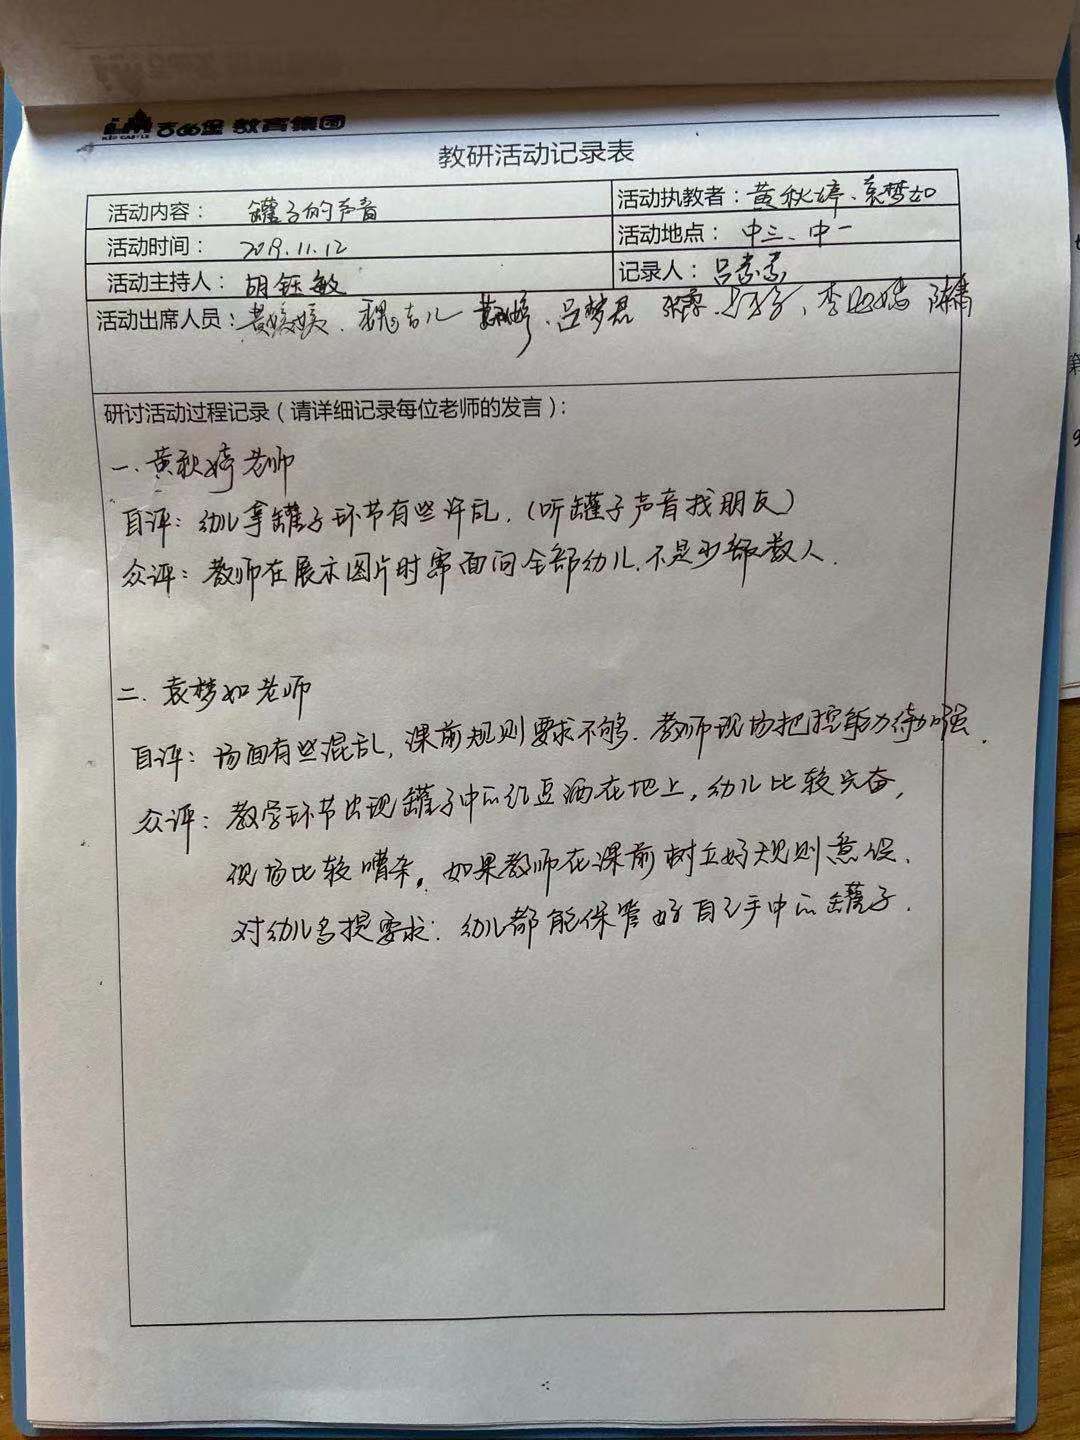 KID CASTLE 吉的堡 教育集团
教研活动记录表
活动内容： 罐子的声音
活动执教者：黄秋婷、袁梦如
活动时间： 2019.11.12
活动地点： 中三、中一
活动主持人： 胡钰敏
记录人：吕素素
活动出席人员： 魏吉儿 吕梦君
研讨活动过程记录（请详细记录每位老师的发言）：
一、黄秋婷老师
自评：幼儿拿罐子环节有些许乱，（听罐子声音找朋友）
众评：教师在展示图片时需面向全部幼儿，不是少部数人．
二、袁梦如老师
自评：场面有些混乱，课前规则要求不够．教师现场把控能力待加强．
众评：教学环节出现罐子中的红豆洒在地上，幼儿比较兴奋，
现场比较嘈杂。如果教师在课前树立好规则意识、
对幼儿多提要求：幼儿都能保管好自己手中的罐子．